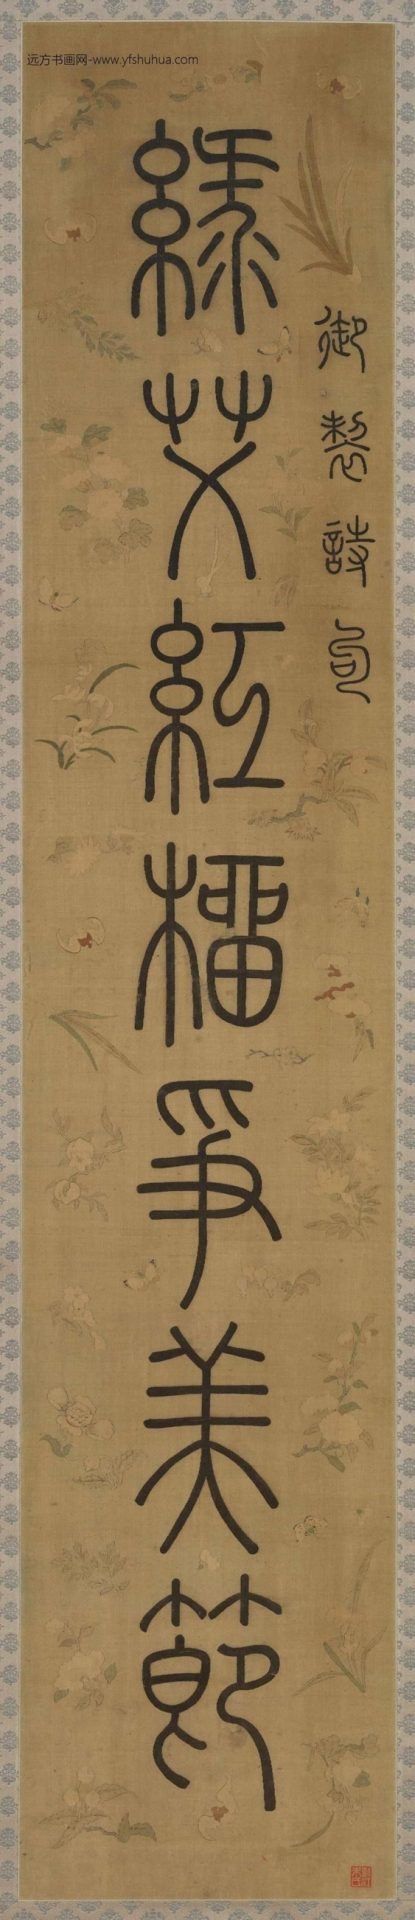 远方书画网-www.yfshuhua.com
御製詩句
綠艾紅榴爭美節